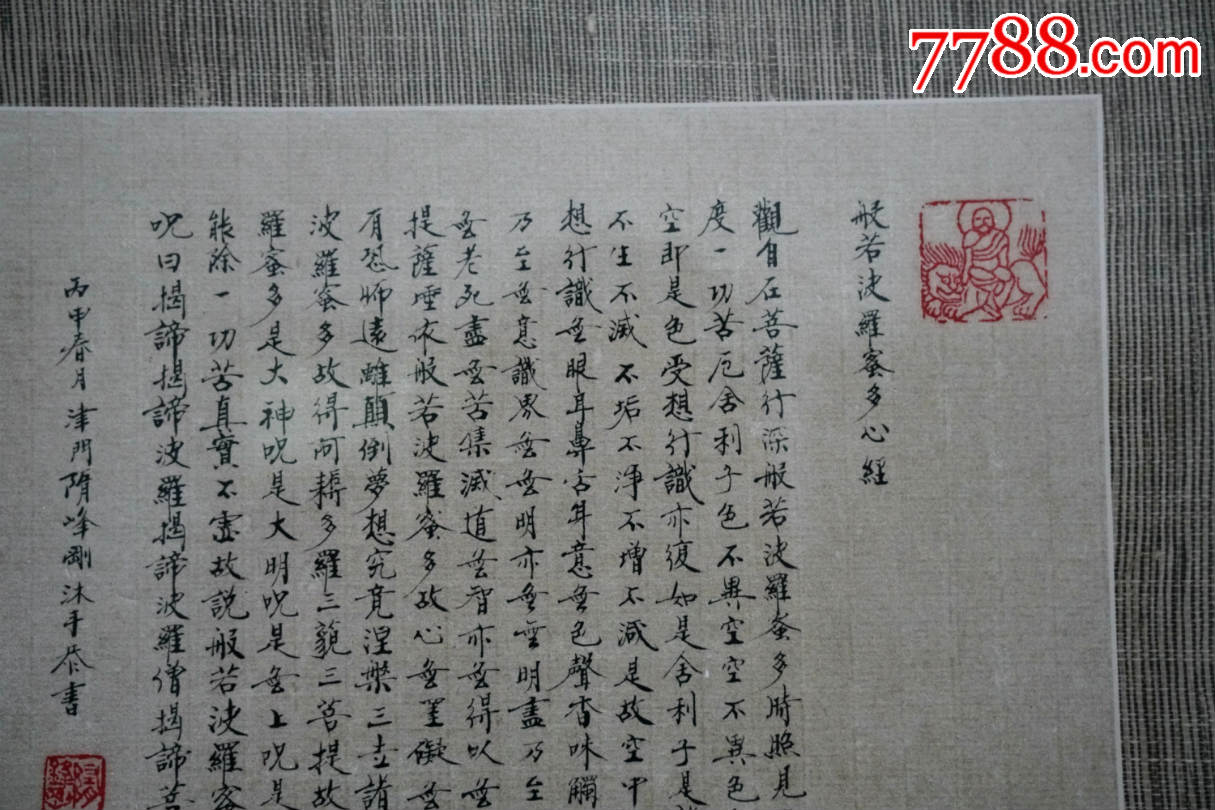 7788.com
般若波羅蜜多心經
觀自在菩薩行深般若波羅蜜多時照見
度一切苦厄舍利子色不異空空不異色
空即是色受想行識亦復如是舍利子是
不生不滅不垢不淨不增不減是故空中
想行識無眼耳鼻舌身意無色聲香味觸
乃至無意識界無無明亦無無明盡乃至
無老死盡無苦集滅道無智亦無得以無
提薩埵依般若波羅蜜多故心無罣礙無
有恐怖遠離顛倒夢想究竟涅槃三世諸
波羅蜜多故得阿耨多羅三藐三菩提故
羅蜜多是大神呪是大明呪是無上呪是
能除一切苦真實不虛故説般若波羅蜜
呪曰揭諦揭諦波羅揭諦波羅僧揭諦菩
丙申春月津門隋峰剛沐手恭書